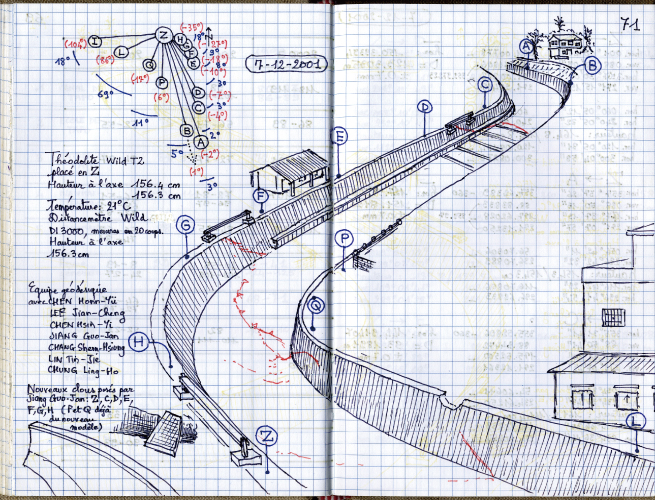 71
7-12-2001
Z
I
L
Q
P
H
G
F
E
D
C
B
A
(-104°)
(86°)
(17°)
(6°)
(-35°)
(-10°)
(-7°)
(-4°)
(-2°)
(1°)
18°
69°
11°
5°
3°
2°
3°
3°
18°
Théodolite Wild T2
placé en Z
Hauteur à l'axe 156.4 cm
156.3 cm
Température: 21°C
Distancemètre Wild
DI 3000, mesures en 20 coups.
Hauteur à l'axe
156.3 cm
Equipe géodésique
avec CHEN Horn-Yü
LEE Jian-Cheng
CHEN Hsin-Yi
JIANG Guo-Jan
CHANG Shem-Hsiung
LIN Tih-Jie
CHUNG Ling-Ho
Nouveaux clous posés par
Jiang Guo-Jan: Z, C, D, E,
F, G, H (P et Q déjà
du nouveau
modèle)
A
B
C
D
E
F
G
P
Q
H
Z
L